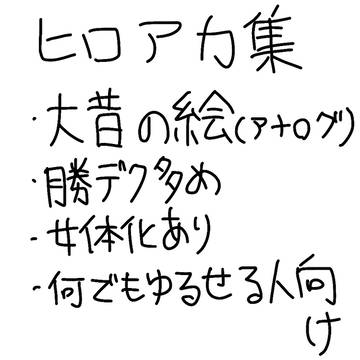 ヒロアカ集
・大昔の絵(アナログ)
・勝デク多め
・女体化あり
・何でもゆるせる人向
け